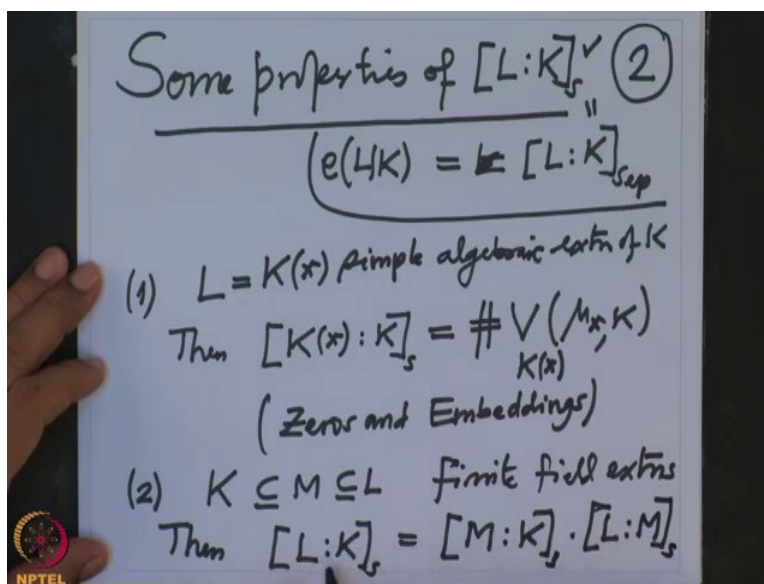 Some properties of [L:K]ₛ ✓ ②
=
e(L|K) = [L:K]ₛₑₚ
(1) L = K(x) simple algebraic extn of K
Then [K(x):K]ₛ = # V (μₓ,K)
K(x)
(Zeros and Embeddings)
(2) K ⊆ M ⊆ L finite field extns
Then [L:K]ₛ = [M:K]ₛ · [L:M]ₛ
NPTEL